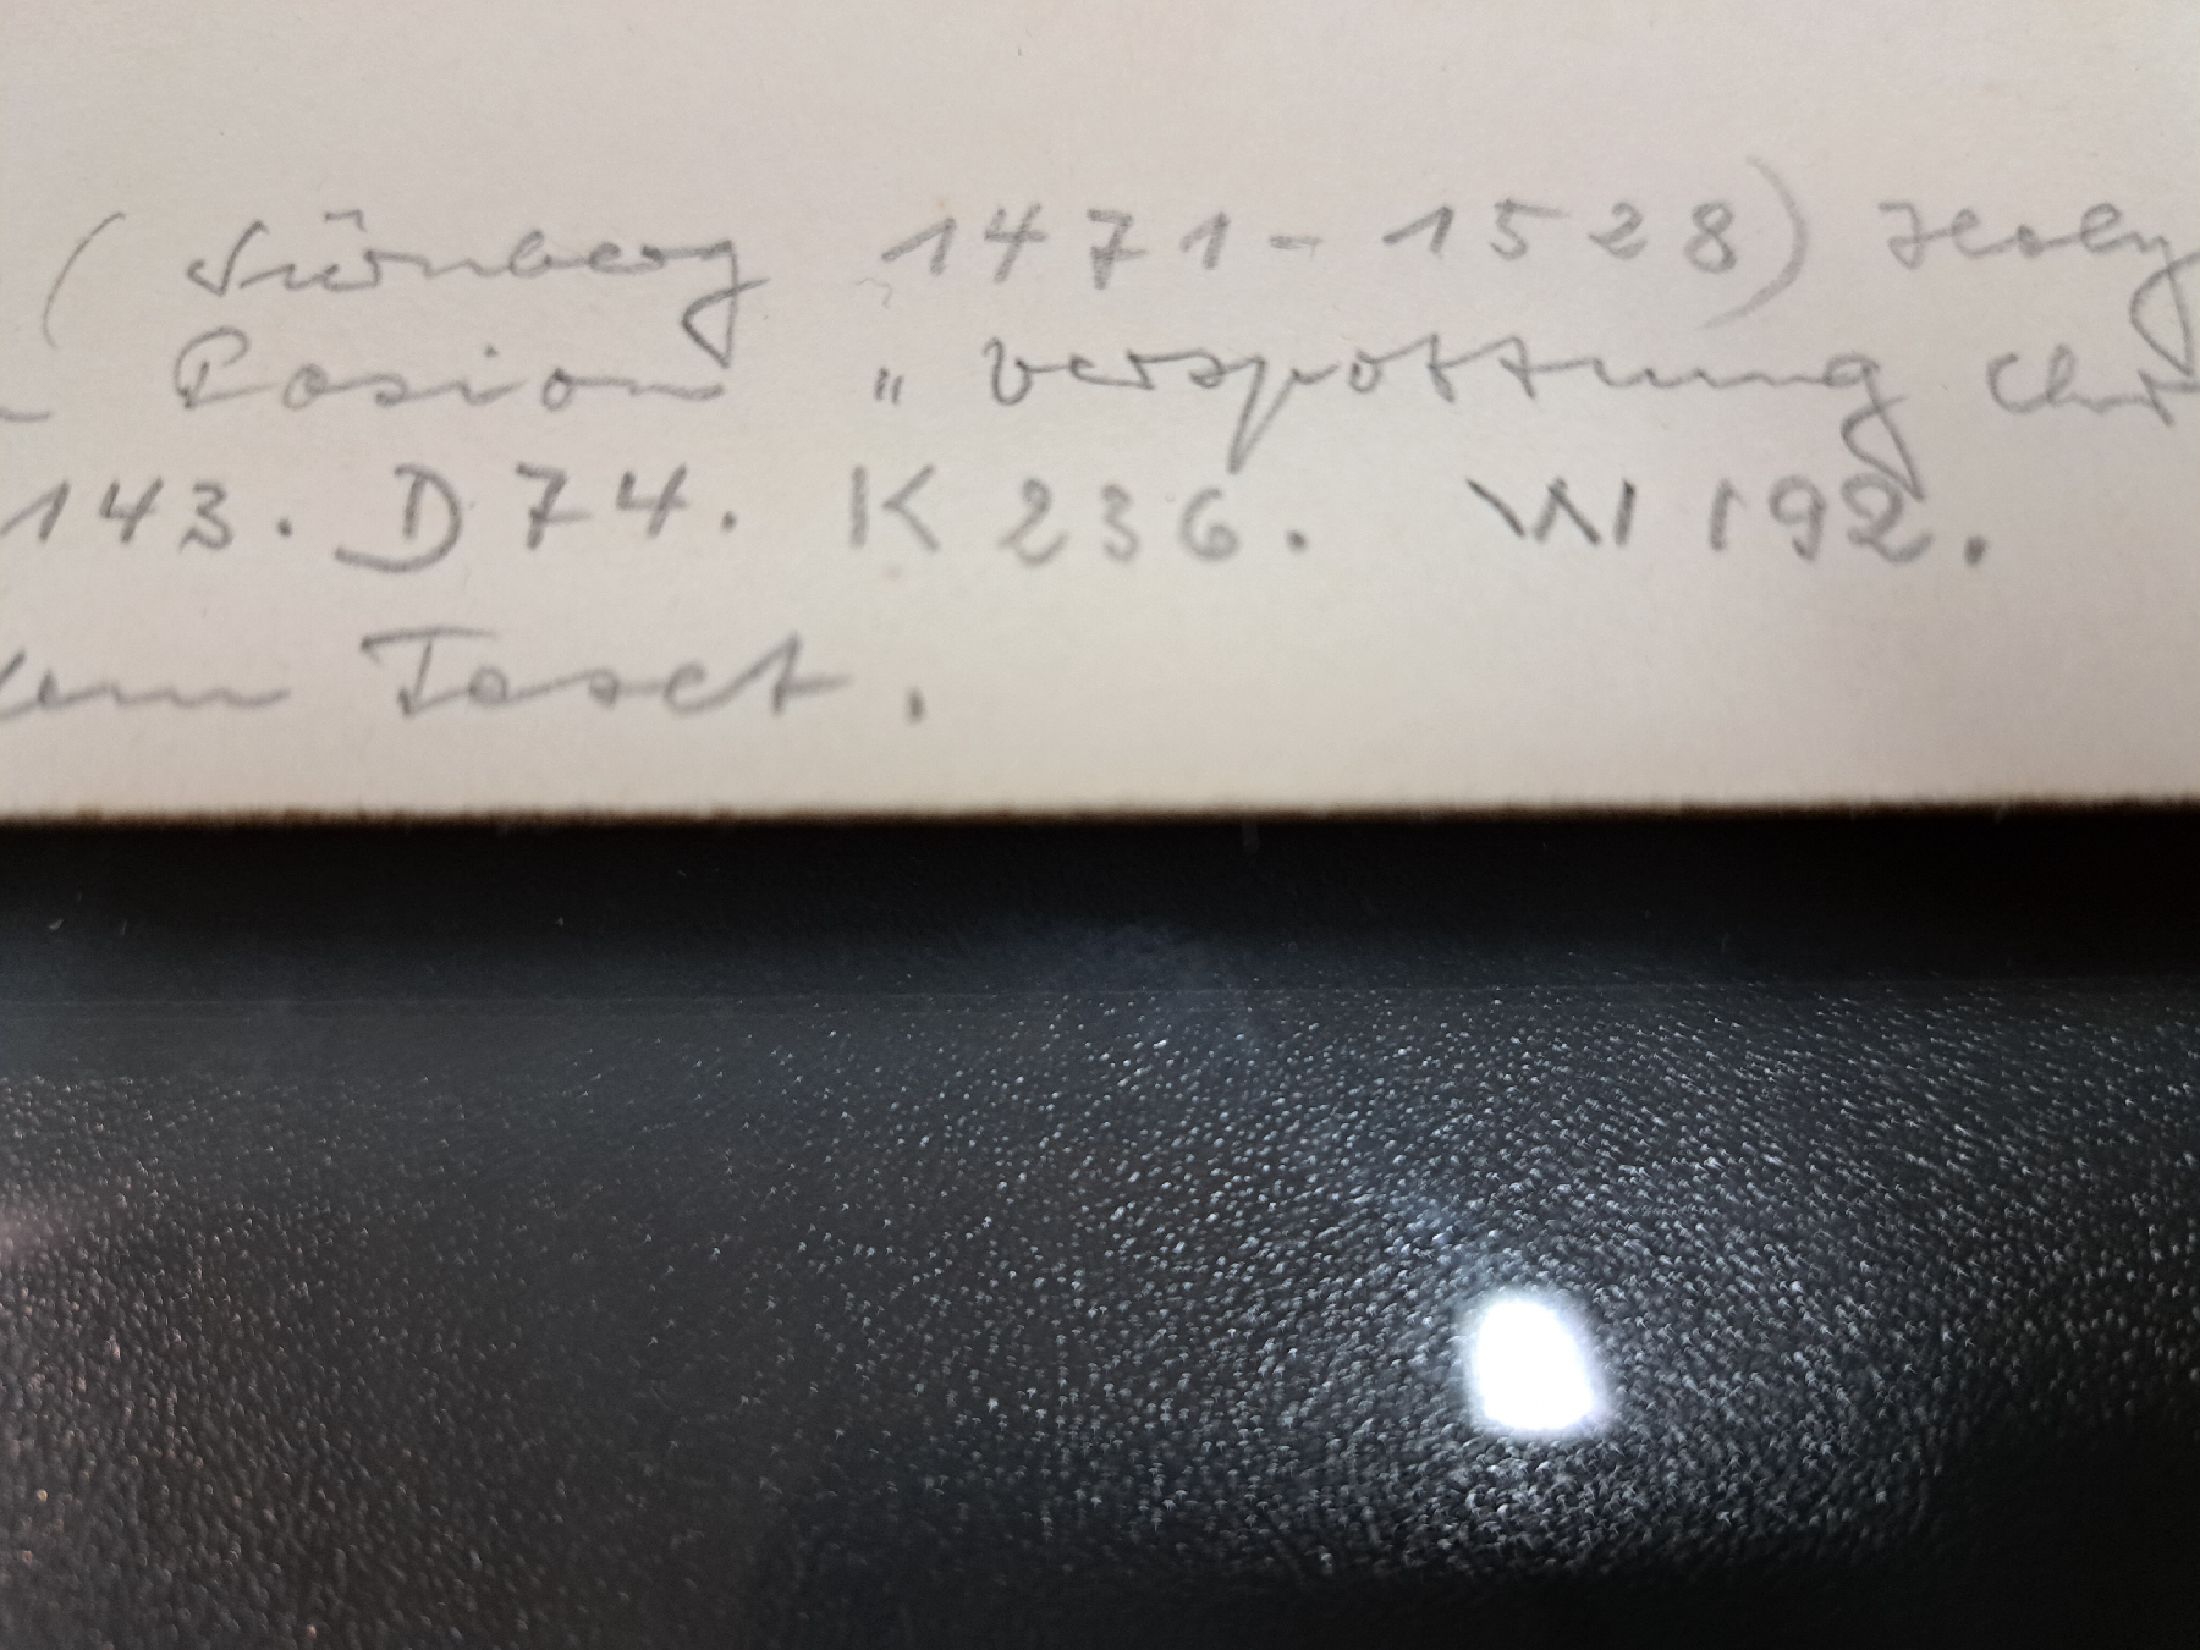 ( Nürnberg 1471 - 1528) Holz
Pasion " verspottung Chri
143. D 74. K 236. W 192.
Tesct.